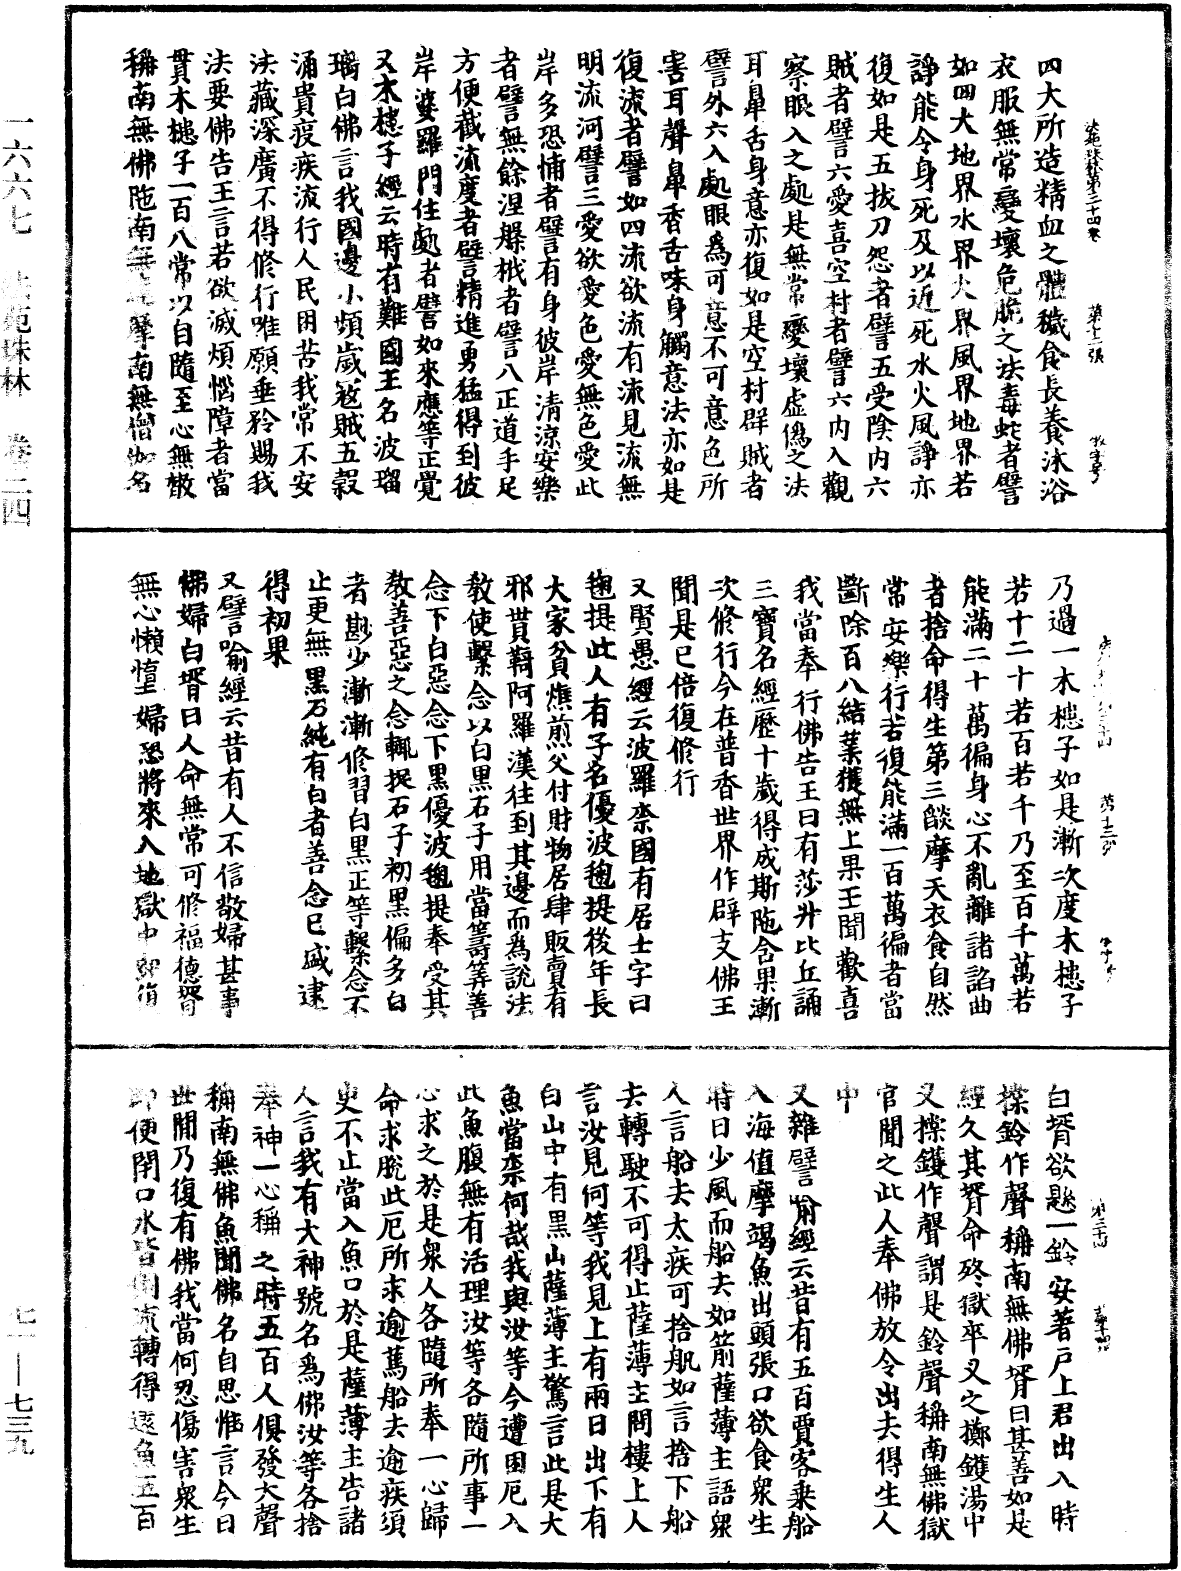 四大所造精血之體穢食長養沐浴
衣服無常變壞危脆之法毒蛇者譬
如四大地界水界火界風界地界若
諍能令身死及以近死水火風諍亦
復如是五拔刀怨者譬五受陰內六
賊者譬六愛喜空村者譬六內入觀
察眼入之處是無常變壞虛偽之法
耳鼻舌身意亦復如是空村群賊者
譬外六入處眼為可意不可意色所
害耳聲鼻香舌味身觸意法亦如是
復流者譬如四流欲流有流見流無
明流河譬三愛欲愛色愛無色愛此
岸多恐怖者譬有身彼岸清涼安樂
者譬無餘涅槃栰者譬八正道手足
方便截流度者譬精進勇猛得到彼
岸婆羅門住處者譬如來應等正覺
又木槵子經云時有難國王名波瑠
璃白佛言我國邊小頻歲寇賊五穀
涌貴疫疾流行人民困苦我常不安
法藏深廣不得修行唯願垂矜賜我
法要佛告王言若欲滅煩惱障者當
貫木槵子一百八常以自隨至心無散
稱南無佛陁南無達摩南無僧伽名
乃過一木槵子如是漸次度木槵子
若十二十若百若千乃至百千萬若
能滿二十萬徧身心不亂離諸諂曲
者捨命得生第三𦦨摩天衣食自然
常安樂行若復能滿一百萬徧者當
斷除百八結業獲無上果王聞歡喜
我當奉行佛告王曰有莎斗比丘誦
三寶名經歷十歲得成斯陁含果漸
次修行今在普香世界作辟支佛王
聞是已倍復修行
又賢愚經云波羅柰國有居士字曰
毱提此人有子名優波毱提後年長
大家貧燋煎父付財物居肆販賣有
邪貰羇阿羅漢往到其邊而為說法
教使繫念以白黑石子用當籌筭善
念下白惡念下黑優波毱提奉受其
教善惡之念輒投石子初黑偏多白
者尠少漸漸修習白黑正等繫念不
止更無黑石純有白者善念已盛逮
得初果
又譬喻經云昔有人不信敬婦甚事
佛婦白壻曰人命無常可修福德壻
無心懶憧婦恐將來入地獄中即復
白壻欲懸一鈴安著戶上君出入時
㨍鈴作聲稱南無佛壻曰甚善如是
經久其壻命終獄卒叉之擲鑊湯中
又㨍鑊作聲謂是鈴聲稱南無佛獄
官聞之此人奉佛放令出去得生人
中
又雜譬喻經云昔有五百賈客乘船
入海值摩竭魚出頭張口欲食眾生
時日少風而船去如箭薩薄主語眾
人言船去太疾可捨帆如言捨下船
去轉駛不可得止薩薄主問樓上人
言汝見何等我見上有兩日出下有
白山中有黑山薩薄主驚言此是大
魚當柰何哉我與汝等今遭困厄入
此魚腹無有活理汝等各隨所事一
心求之於是眾人各隨所奉一心歸
命求脫此厄所求逾篤船去逾疾須
臾不止當入魚口於是薩薄主告諸
人言我有大神號名為佛汝等各捨
本奉神一心稱之時五百人俱發大聲
稱南無佛魚聞佛名自思惟言今日
世間乃復有佛我當何忍傷害眾生
即便閉口水皆倒流轉得遠魚五百
一六六七 法苑珠林 卷三四
七一—七三九